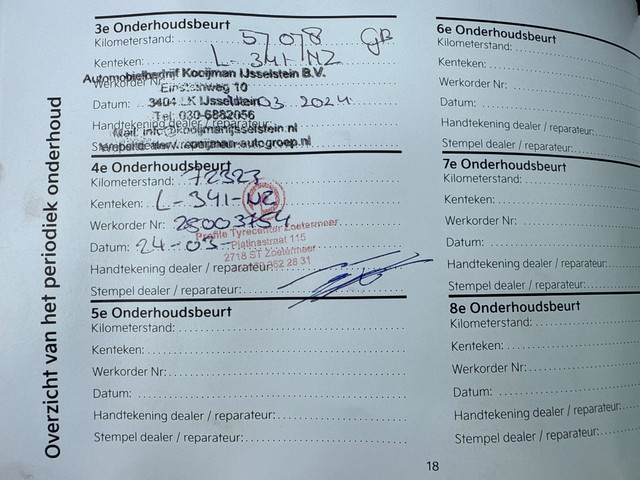 Overzicht van het periodiek onderhoud
3e Onderhoudsbeurt
Kilometerstand: 57078 GB
Kenteken: L-341-NZ
Automobielbedrijf Kooijman IJsselstein B.V.
Werkorder Nr:
Einsteinweg 10
3404 LK IJsselstein
Datum: 03 2024
Tel: 030-6882056
Handtekening dealer / reparateur:
Mail: info@kooijmanijsselstein.nl
Stempel dealer / reparateur:
4e Onderhoudsbeurt
Kilometerstand: 72323
Kenteken: L-341-NZ
Werkorder Nr: 25003754
Profile Tyrecenter Zoetermeer
Datum: 24-03-
Platinastraat 115
2718 ST Zoetermeer
Handtekening dealer / reparateur:
352 28 31
Stempel dealer / reparateur:
5e Onderhoudsbeurt
Kilometerstand:
Kenteken:
Werkorder Nr:
Datum:
Handtekening dealer / reparateur:
Stempel dealer / reparateur:
6e Onderhoudsbeurt
Kilometerstand:
Kenteken:
Werkorder Nr:
Datum:
Handtekening dealer / reparateur:
Stempel dealer / reparateur:
7e Onderhoudsbeurt
Kilometerstand:
Kenteken:
Werkorder Nr:
Datum:
Handtekening dealer / reparateur:
Stempel dealer / reparateur:
8e Onderhoudsbeurt
Kilometerstand:
Kenteken:
Werkorder Nr:
Datum:
Handtekening dealer / reparateur:
Stempel dealer / reparateur:
18